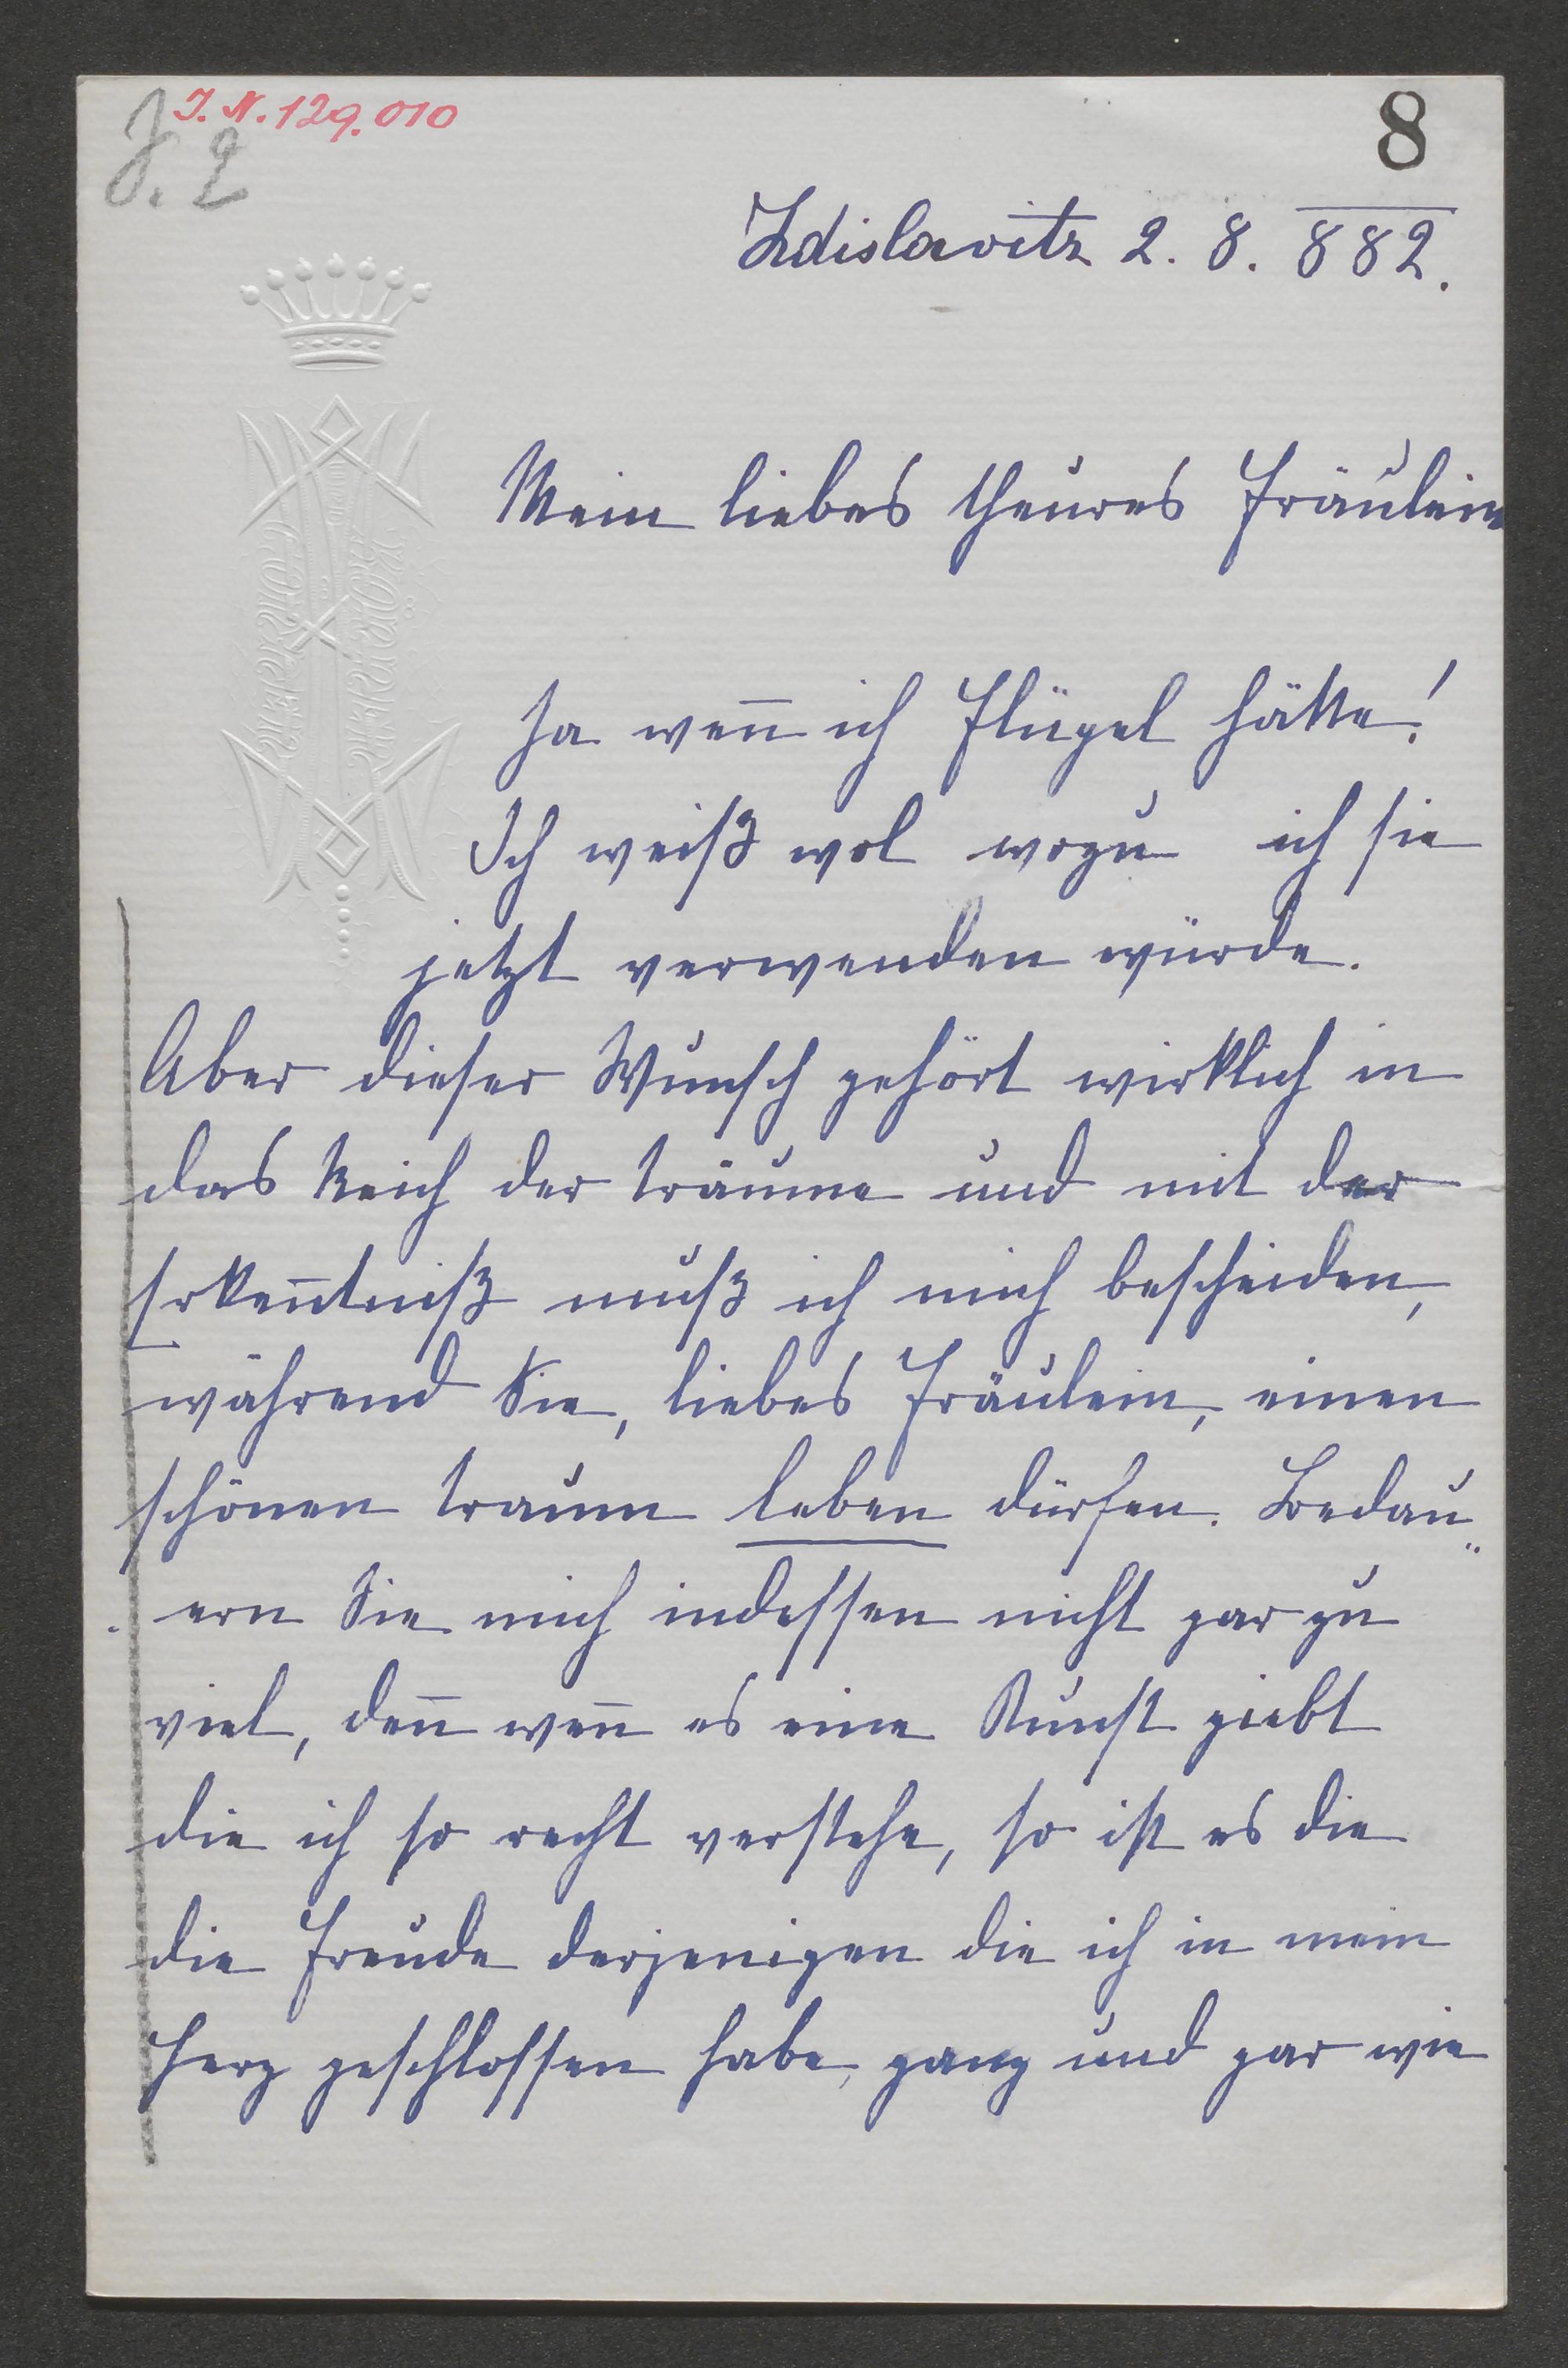 J. N. 129.010
J. 2
8
Zdislavitz 2. 8. 882.
Mein liebes theures Fräulein
Ja weñ ich Flügel hätte!
Ich weiß wol wozu ich sie
jetzt verwenden würde.
Aber dieser Wunsch gehört wirklich in
das Reich der Träume und mit der
Erkeñtniß muß ich mich bescheiden,
während Sie, liebes Fräulein, einen
schönen Traum leben dürfen. Bedau„
ern Sie mich indessen nicht gar zu
viel, deñ weñ es eine Kunst giebt
die ich so recht verstehe, so ist es die
die Freude derjenigen die ich in mein
Herz geschlossen habe, ganz und gar wie